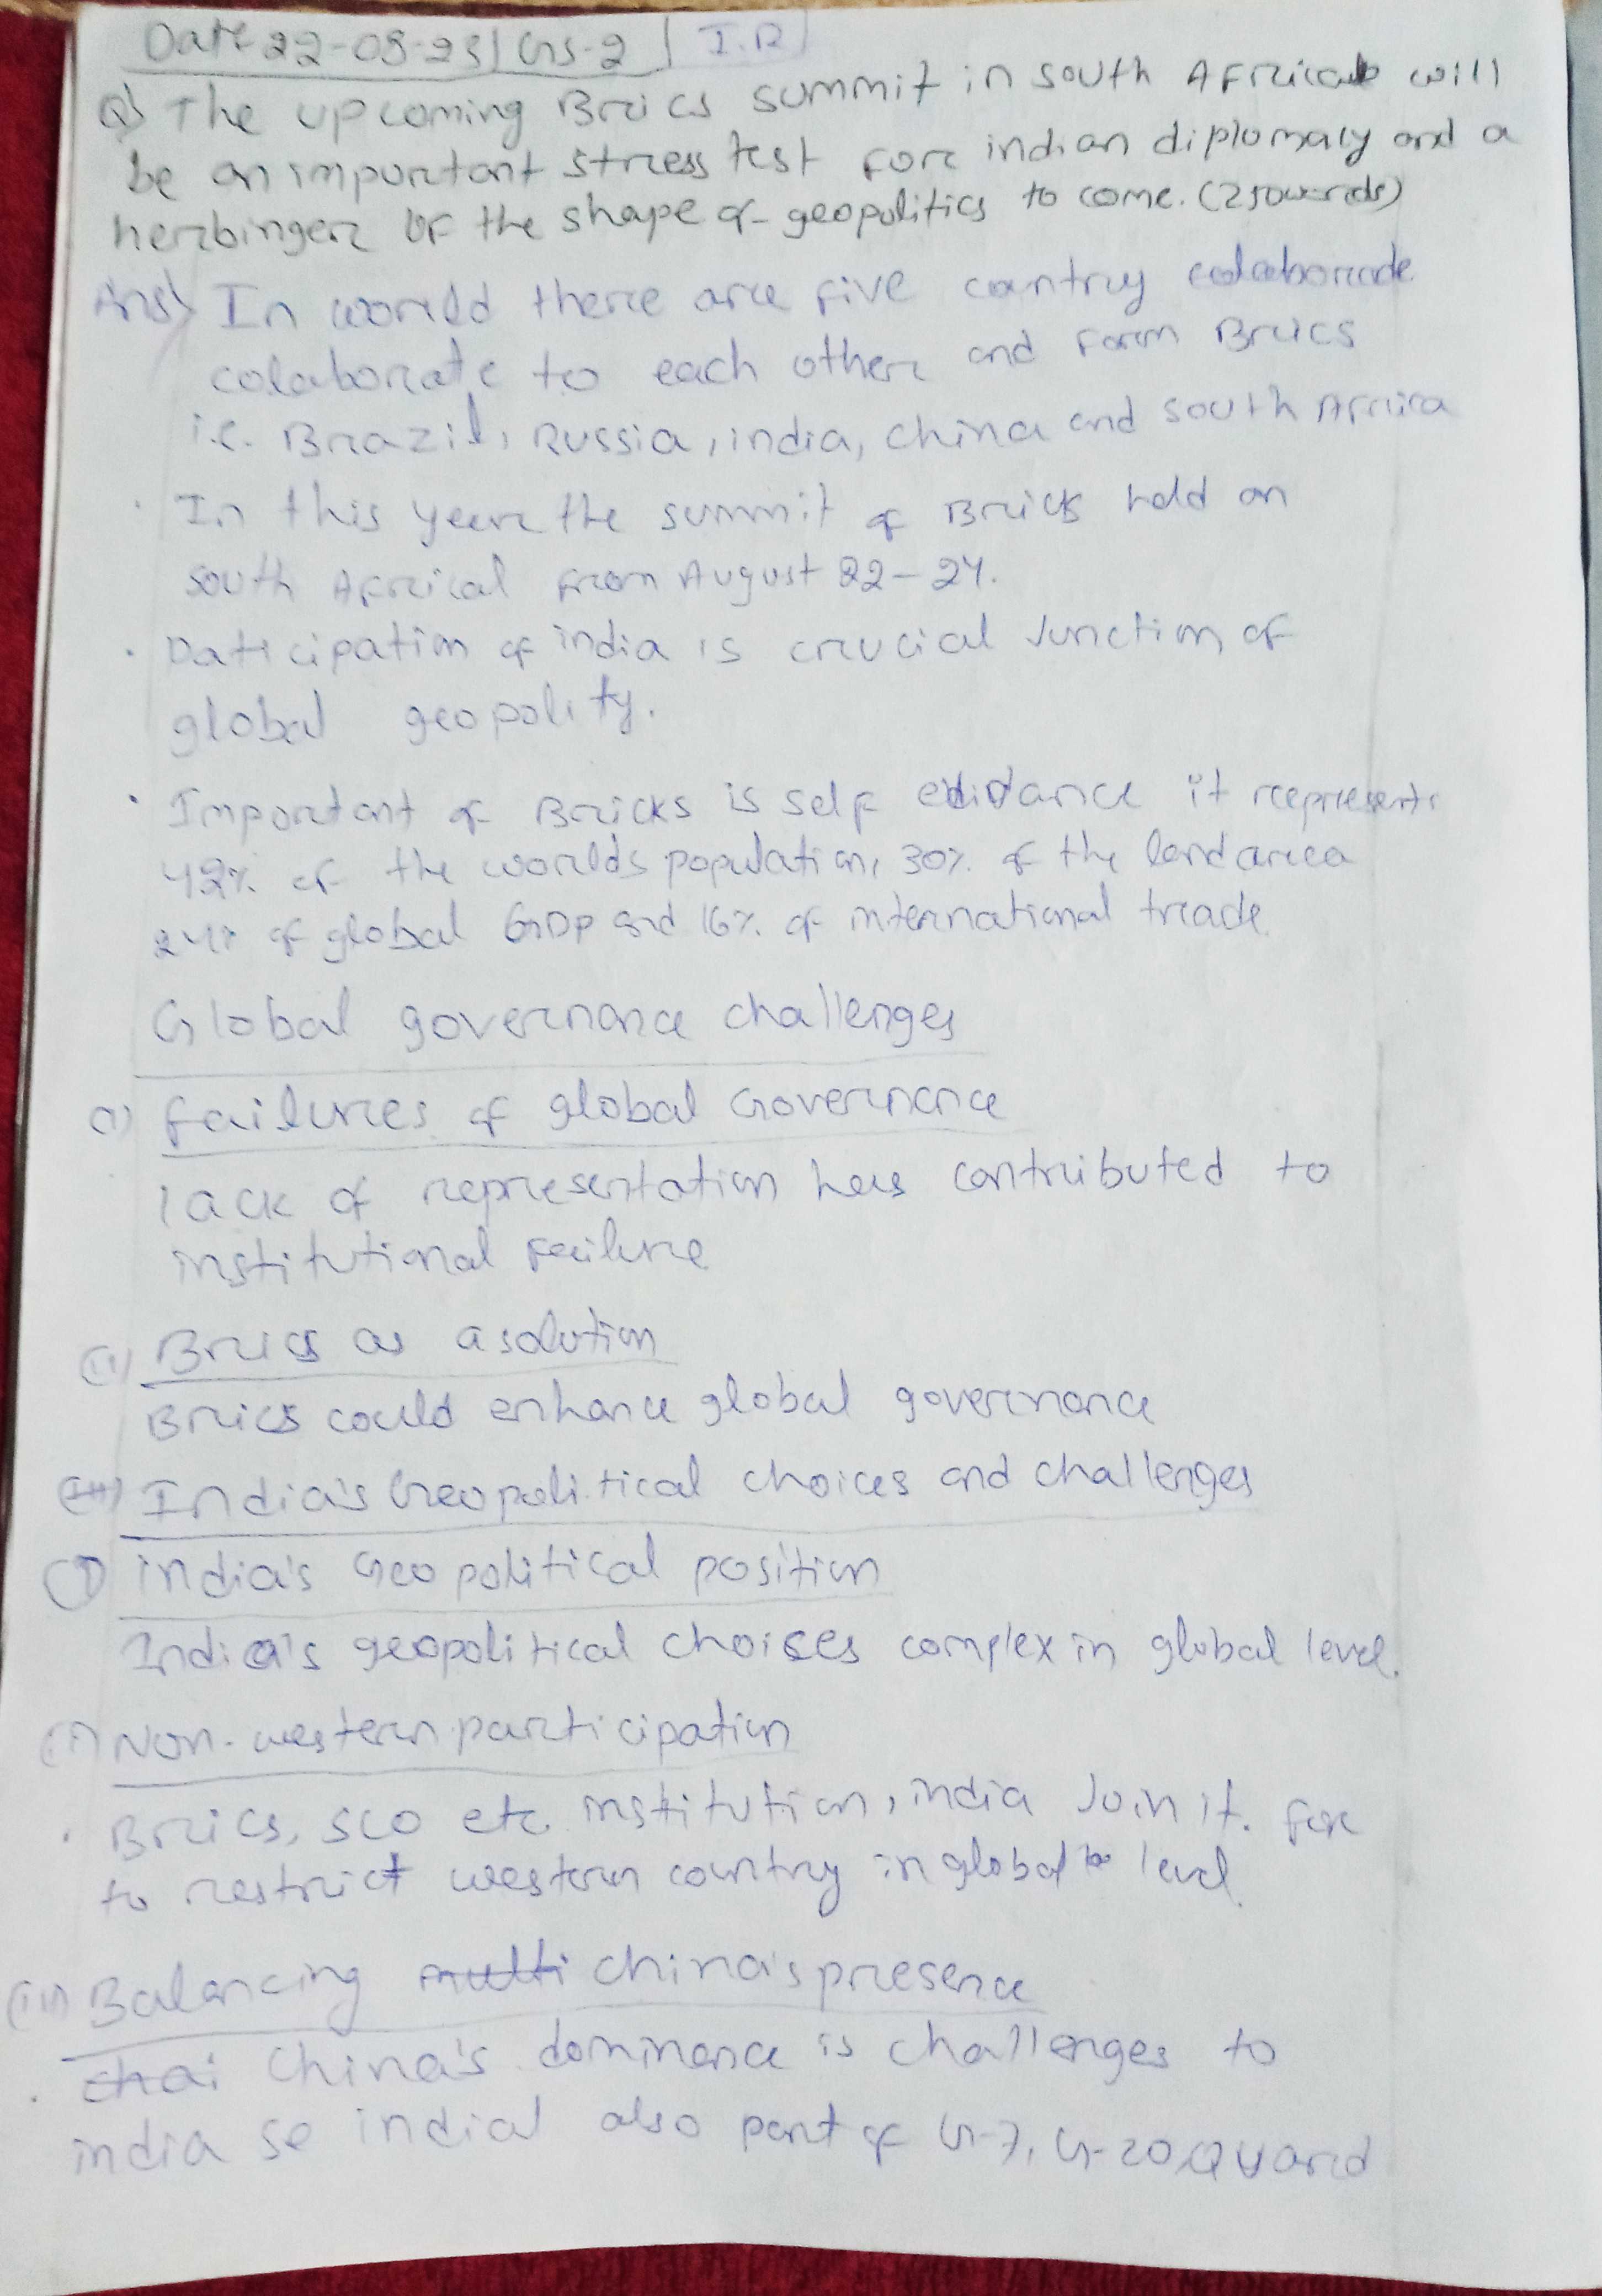 Date 22-08-23 | GS-2 | I.R
Q) The upcoming Brics summit in south Africa will
be an important stress test for indian diplomacy and a
herbinger of the shape of geopolitics to come. (250words)
Ans) In world there are five cantry colaborade
colaborate to each other and form Brics
i.e. Brazil, Russia, india, china and south Africa
· In this year the summit of Brick held on
south African from August 22-24.
· Paticipation of india is crucial Junction of
global geopolity.
· Important of Bricks is self evidance it represents
42% of the worlds population, 30% of the land area
24% of global GDP and 16% of international trade
Global governance challenges
(i) failures of global Governance
lack of representation has contributed to
institutional failure
(ii) Brics as a solution
Brics could enhance global governance
(iii) India's Geopolitical choices and challenges
(i) india's Geo political position
India's geopolitical choises complex in global level.
(ii) Non-western participation
· Brics, SCO etc institution, india Join it. for
to restrict western country in global level.
(iii) Balancing multi china's presence
· chai China's dominance is challenges to
india so also part of G-7, G-20, Quard